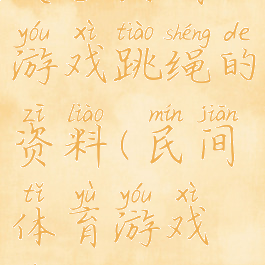 yóu xì tiào shéng de
游戏跳绳的
zī liào mín jiān
资料(民间
tǐ yù yóu xì
体育游戏